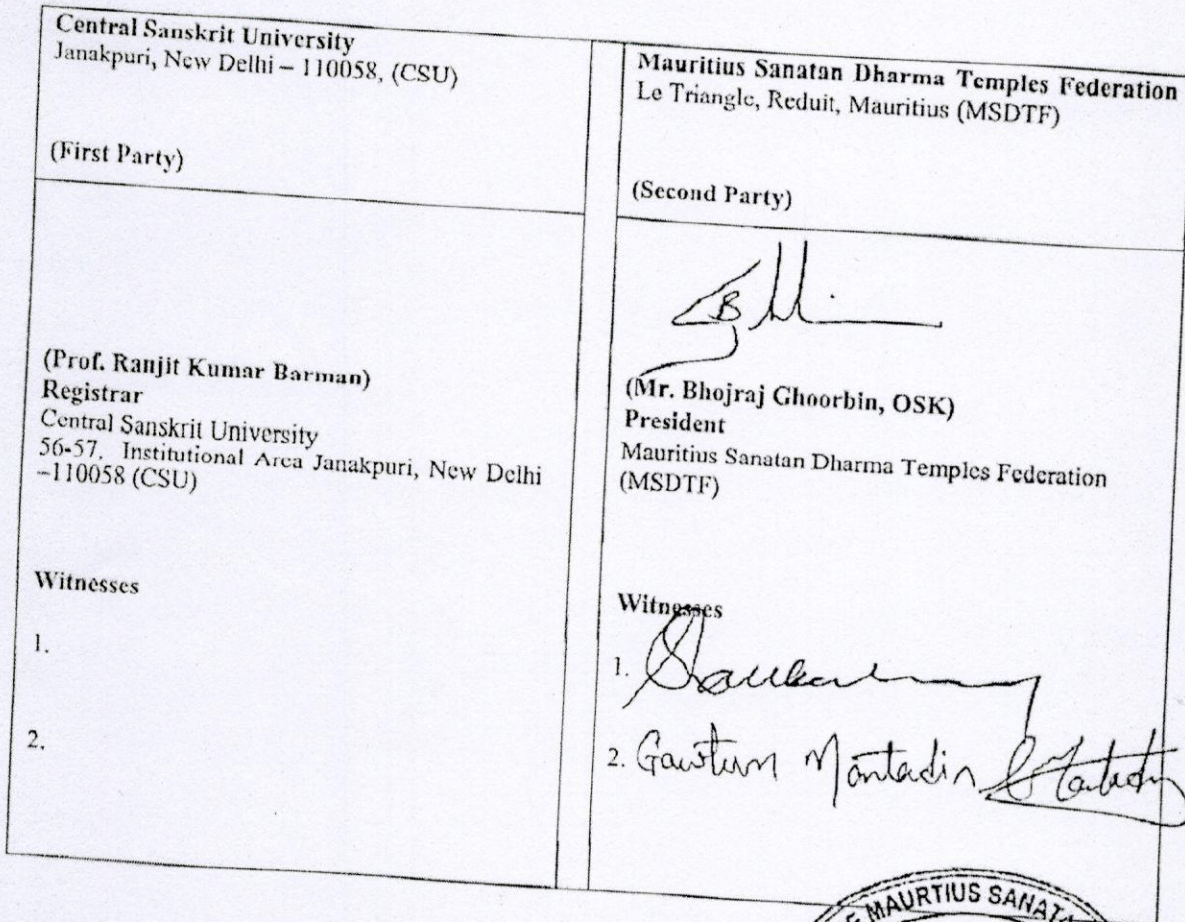 Central Sanskrit University
Janakpuri, New Delhi – 110058, (CSU)
(First Party)
(Prof. Ranjit Kumar Barman)
Registrar
Central Sanskrit University
56-57, Institutional Area Janakpuri, New Delhi
–110058 (CSU)
Witnesses
1.
2.
Mauritius Sanatan Dharma Temples Federation
Le Triangle, Reduit, Mauritius (MSDTF)
(Second Party)
(Mr. Bhojraj Ghoorbin, OSK)
President
Mauritius Sanatan Dharma Temples Federation
(MSDTF)
Witnesses
1.
2. Mantadin
MAURTIUS